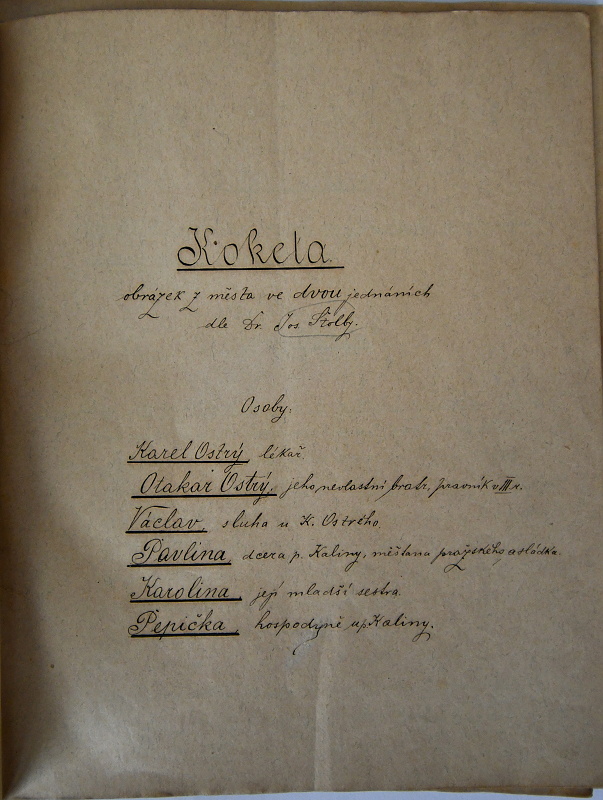 Koketa.
obrázek z města ve dvou jednáních
dle Dr. Jos Štolby.
Osoby:
Karel Ostrý, lékař.
Otakar Ostrý, jeho nevlastní bratr, právník v III r.
Václav, sluha u K. Ostrého.
Pavlina, dcera p. Kaliny, měštana pražského, a sládka.
Karolina, její mladší sestra.
Pepička, hospodyně u p. Kaliny.